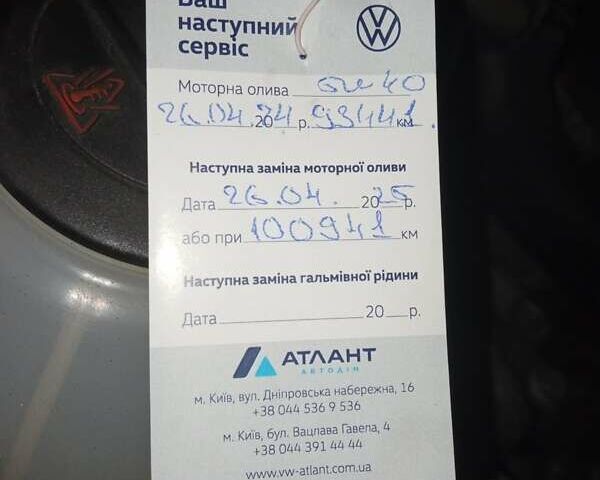 Ваш
наступний
сервіс
Моторна олива 5w40
26.04.2024 р. 93441 км.
Наступна заміна моторної оливи
Дата 26.04. 2025 р.
або при 100941 км
Наступна заміна гальмівної рідини
Дата 20 р.
АТЛАНТ
АВТОДІМ
м. Київ, вул. Дніпровська набережна, 16
+38 044 536 9 536
м. Київ, бул. Вацлава Гавела, 4
+38 044 391 44 44
www.vw-atlant.com.ua